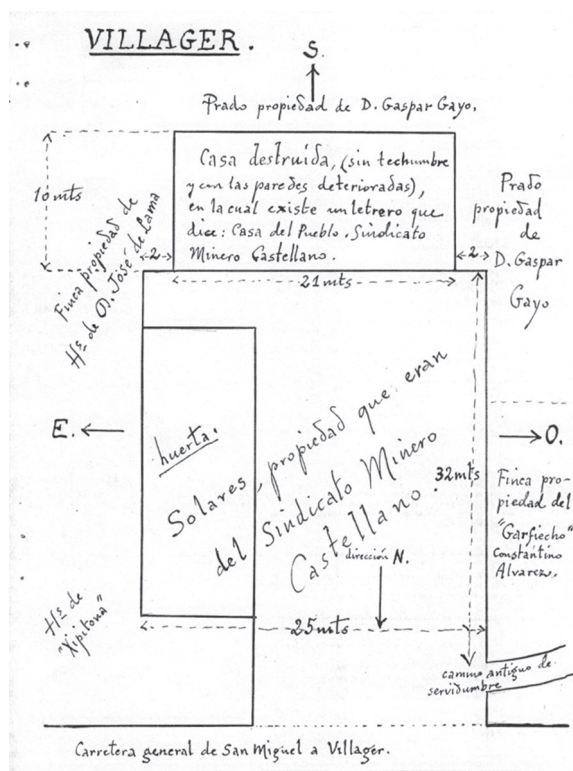 VILLAGER.
S.
Prado propiedad de D. Gaspar Gayo.
Casa destruída, (sin techumbre
y con las paredes deterioradas),
en la cual existe un letrero que
dice: Casa del Pueblo. Sindicato
Minero Castellano.
10 mts
Finca propiedad de
Hs. de D. José de Lama
2
2
21 mts
Prado
propiedad
de
D. Gaspar
Gayo
E.
O.
huerta.
Solares, propiedad que eran
del Sindicato Minero
Castellano.
32 mts
Finca pro-
piedad del
"Garfiecho"
Constantino
Alvarez.
dirección N.
Hs. de
"Xipitona"
25 mts
camino antiguo de
servidumbre
Carretera general de San Miguel a Villager.